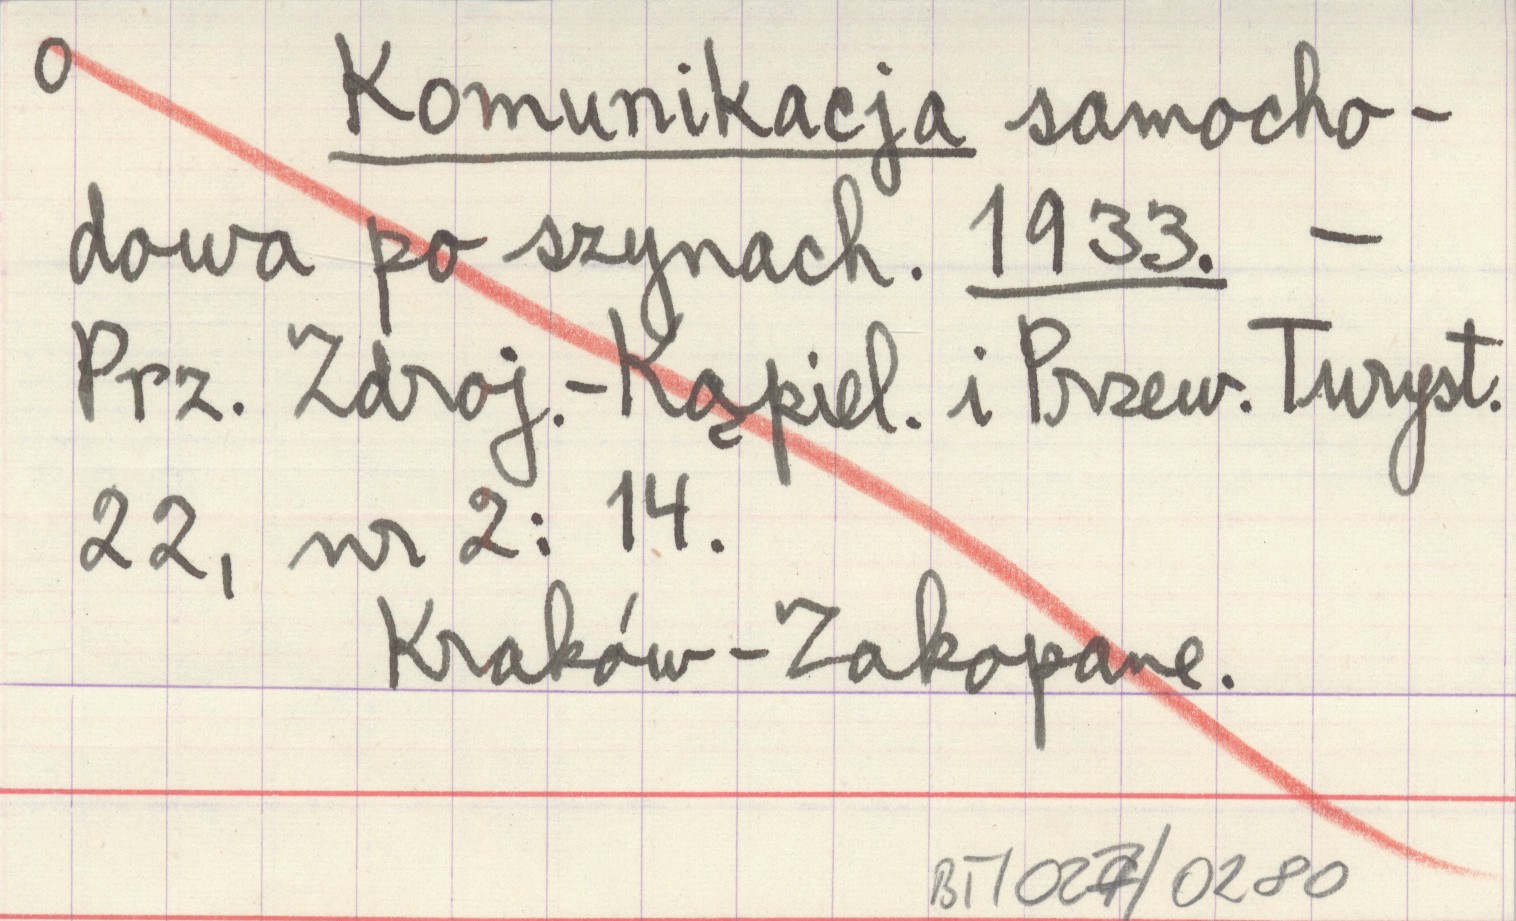 o Komunikacja samocho-
dowa po szynach. 1933. -
Prz. Zdroj.-Kąpiel. i Przew. Turyst.
22, nr 2: 14.
Kraków-Zakopane.
0280